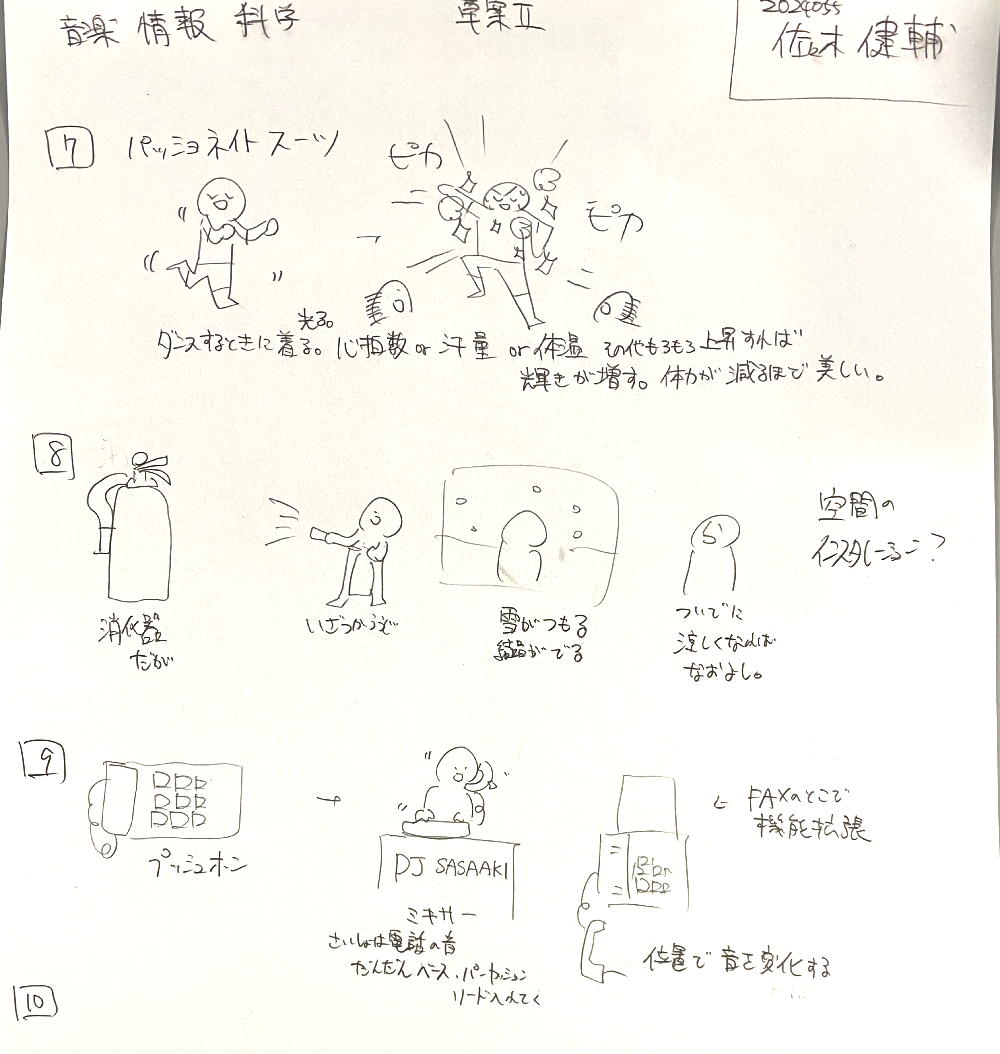 音楽 情報 科学
草案Ⅱ
2024055
佐々木 健輔
7 パッショネイトスーツ
ピカ
ピカ
光る。
ダンスするときに着る。心拍数 or 汗量 or 体温 その他もろもろ上昇すれば
輝きが増す。体力が減るほど美しい。
8
消化器
だが
いざつかうと
雪がつもる
結晶がでる
ついでに
涼しくなれば
なおよし。
空間の
インスタレーション?
9
プッシュホン
→
DJ SASAAKI
ミキサー
さいしょは電話の音
だんだんベース、パーカッション
リード入れてく
← FAXのとこで
機能拡張
位置で音を変化する
10